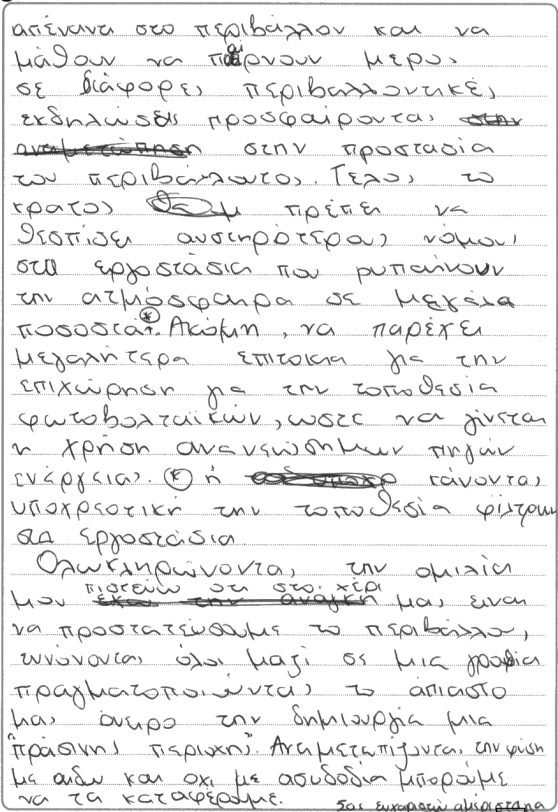 απέναντι στο περιβάλλον και να
μάθουν να παίρνουν μερος
σε διάφορες περιβαλλοντικές
εκδηλώσεις προσφαίροντας στην
αντιμετώπηση στην προστασία
του περιβάλλοντος. Τέλος το
κρατος θα πρέπει να
θεσπίσει αυστηρότερους νόμους
στα εργοστάσια που ρυπαίνουν
την ατμόσφαιρα σε μεγάλα
ποσοστα*. Ακόμη, να παρέχει
μεγαλήτερα επιτοκια για την
επιχώρηση για την τοποθεσία
φωτοβολταϊκών, ωστε να γίνεται
η χρήση ανανεώσημων πηγών
ενέργειας. * ή κάνοντας
υποχρεοτική την τοποθεσία φίλτρων
στα εργοστάσια.
Ολωκληρώνοντας την ομιλία
πιστεύω οτι στο χέρι
μου έχου την ανάγκη μας ειναι
να προστατεύσουμε το περιβάλλον,
ενώνοντας όλοι μαζί σε μια γροθια
πραγματοποιώντας το άπιαστο
μας όνειρο την δημιουργία μια
"πράσινης περιοχής". Αντιμετωπίζοντας την φύση
με αιδώ και όχι με ασυδοδία μπορούμε
να τα καταφέρουμε.
Σας ευχαριστώ